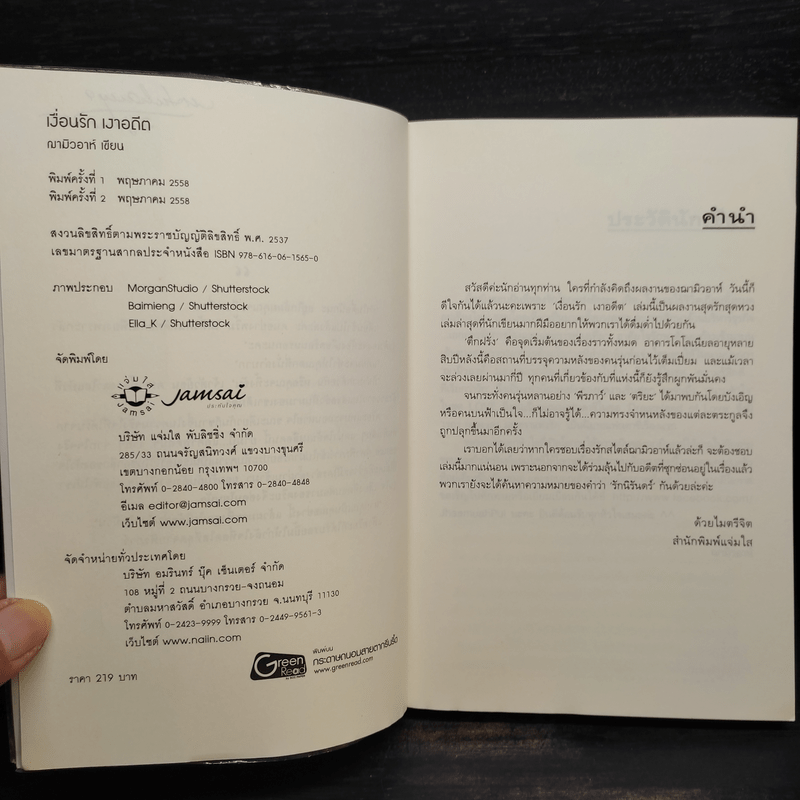 เงื่อนรัก เงาอดีต
ฌามิวอาห์ เขียน
พิมพ์ครั้งที่ 1 พฤษภาคม 2558
พิมพ์ครั้งที่ 2 พฤษภาคม 2558
สงวนลิขสิทธิ์ตามพระราชบัญญัติลิขสิทธิ์ พ.ศ. 2537
เลขมาตรฐานสากลประจำหนังสือ ISBN 978-616-06-1565-0
ภาพประกอบ MorganStudio / Shutterstock
Baimieng / Shutterstock
Ella_K / Shutterstock
จัดพิมพ์โดย
แจ่มใส
Jamsai
Jamsai
บริษัท แจ่มใส พับลิชชิ่ง จำกัด
285/33 ถนนจรัญสนิทวงศ์ แขวงบางขุนศรี
เขตบางกอกน้อย กรุงเทพฯ 10700
โทรศัพท์ 0-2840-4800 โทรสาร 0-2840-4848
อีเมล editor@jamsai.com
เว็บไซต์ www.jamsai.com
จัดจำหน่ายทั่วประเทศโดย
บริษัท อมรินทร์ บุ๊ค เซ็นเตอร์ จำกัด
108 หมู่ที่ 2 ถนนบางกรวย-จงถนอม
ตำบลมหาสวัสดิ์ อำเภอบางกรวย จ.นนทบุรี 11130
โทรศัพท์ 0-2423-9999 โทรสาร 0-2449-9561-3
เว็บไซต์ www.naiin.com
Green Read
พิมพ์บน
กระดาษถนอมสายตากรีนรี้ด
www.greenread.com
ราคา 219 บาท
คำนำ
สวัสดีค่ะนักอ่านทุกท่าน ใครที่กำลังคิดถึงผลงานของฌามิวอาห์ วันนี้ก็
ดีใจกันได้แล้วนะคะเพราะ 'เงื่อนรัก เงาอดีต' เล่มนี้เป็นผลงานสุดรักสุดหวง
เล่มล่าสุดที่นักเขียนมากฝีมืออยากให้พวกเราได้ดื่มด่ำไปด้วยกัน
'ตึกฝรั่ง' คือจุดเริ่มต้นของเรื่องราวทั้งหมด อาคารโคโลเนียลอายุหลาย
สิบปีหลังนี้คือสถานที่บรรจุความหลังของคนรุ่นก่อนไว้เต็มเปี่ยม และแม้เวลา
จะล่วงเลยผ่านมากี่ปี ทุกคนที่เกี่ยวข้องกับที่แห่งนี้ก็ยังรู้สึกผูกพันมั่นคง
จนกระทั่งคนรุ่นหลานอย่าง 'พีรภาว์' และ 'ตริยะ' ได้มาพบกันโดยบังเอิญ
หรือคนบนฟ้าเป็นใจ...ก็ไม่อาจรู้ได้...ความทรงจำหนหลังของแต่ละตระกูลจึง
ถูกปลุกขึ้นมาอีกครั้ง
เราบอกได้เลยว่าหากใครชอบเรื่องรักสไตล์ฌามิวอาห์แล้วล่ะก็ จะต้องชอบ
เล่มนี้มากแน่นอน เพราะนอกจากจะได้ร่วมลุ้นไปกับอดีตที่ซุกซ่อนอยู่ในเรื่องแล้ว
พวกเรายังจะได้ค้นหาความหมายของคำว่า 'รักนิรันดร์' กันด้วยล่ะค่ะ
ด้วยไมตรีจิต
สำนักพิมพ์แจ่มใส